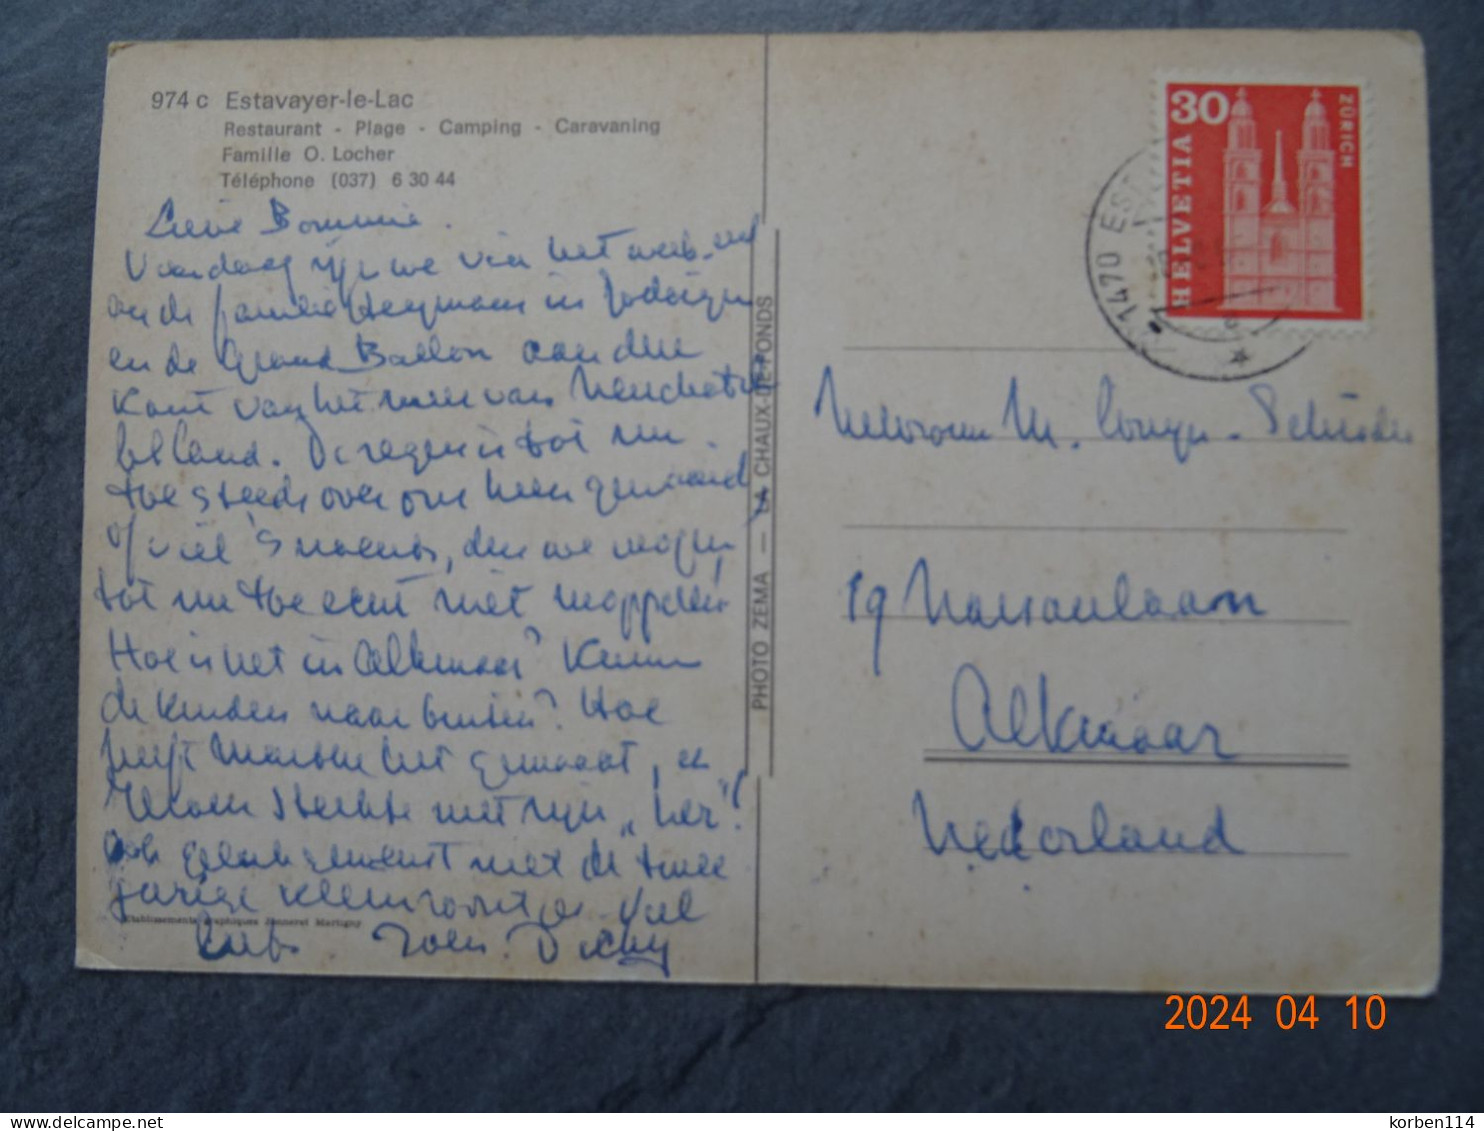 974 c Estavayer-le-Lac
Restaurant - Plage - Camping - Caravaning
Famille O. Locher
Téléphone (037) 6 30 44
Lieve Bommie.
Vandaag zijn we van het week-end
en de familie Heymans in
en de Grand Ballon aan de
kant van het meer van Neuchatel
beland. De regen is tot nu
toe steeds over ons heen gewaaid
of viel 's nachts, dus we mogen
tot nu toe echt niet mopperen
Hoe is het in Alkmaar? Kunnen
de kinderen naar buiten? Hoe
heeft het gemaakt, en
met zijn „ "?
ook met de twee
jarige kleinzoontje. Veel
liefs
Etablissements graphiques Jenneret Martigny
PHOTO ZEMA — LA CHAUX-DE-FONDS
HELVETIA
30
ZÜRICH
1470 EST
Mevrouw M.
19 Nassaulaan
Alkmaar
Nederland
2024 04 10
korben114